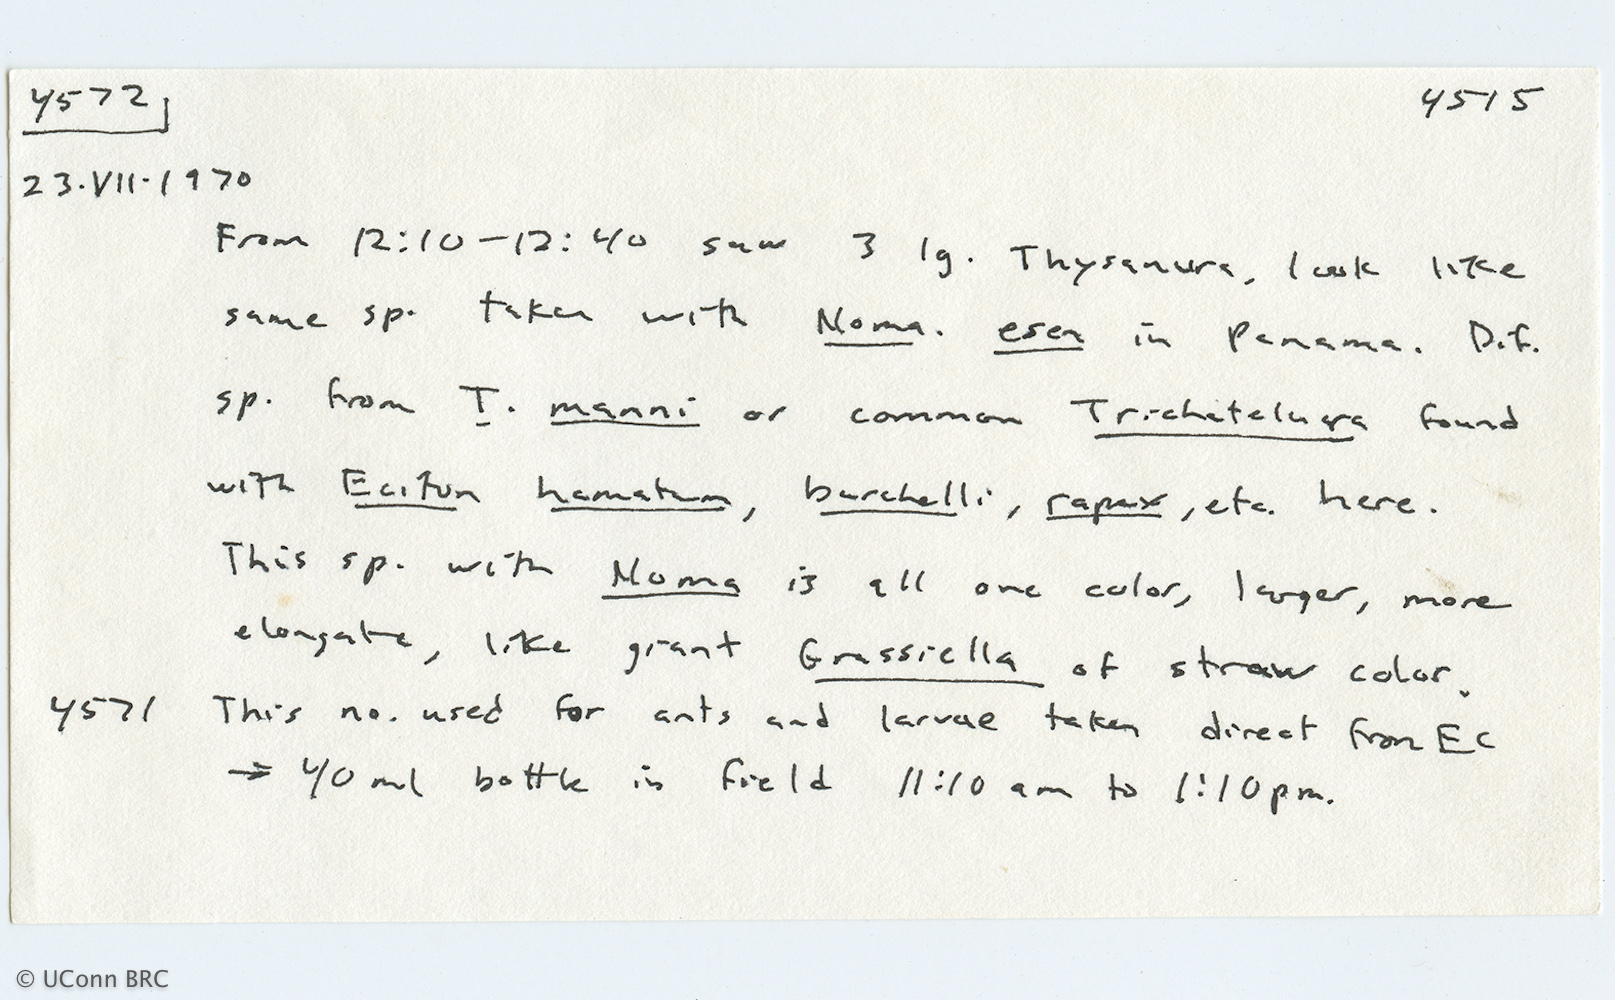 4572 4515
23.VII.1970
From 12:10-12:40 saw 3 lg. Thysanura, look like
same sp. taken with Noma. esen in Panama. Dif.
sp. from T. manni or common Trichatelura found
with Eciton hamatum, burchelli, rapax, etc. here.
This sp. with Noma is all one color, larger, more
elongate, like giant Grassiella of straw color.
4571 This no. used for ants and larvae taken direct from EC
→ 40 ml bottle in field 11:10 am to 1:10 pm.
© UConn BRC